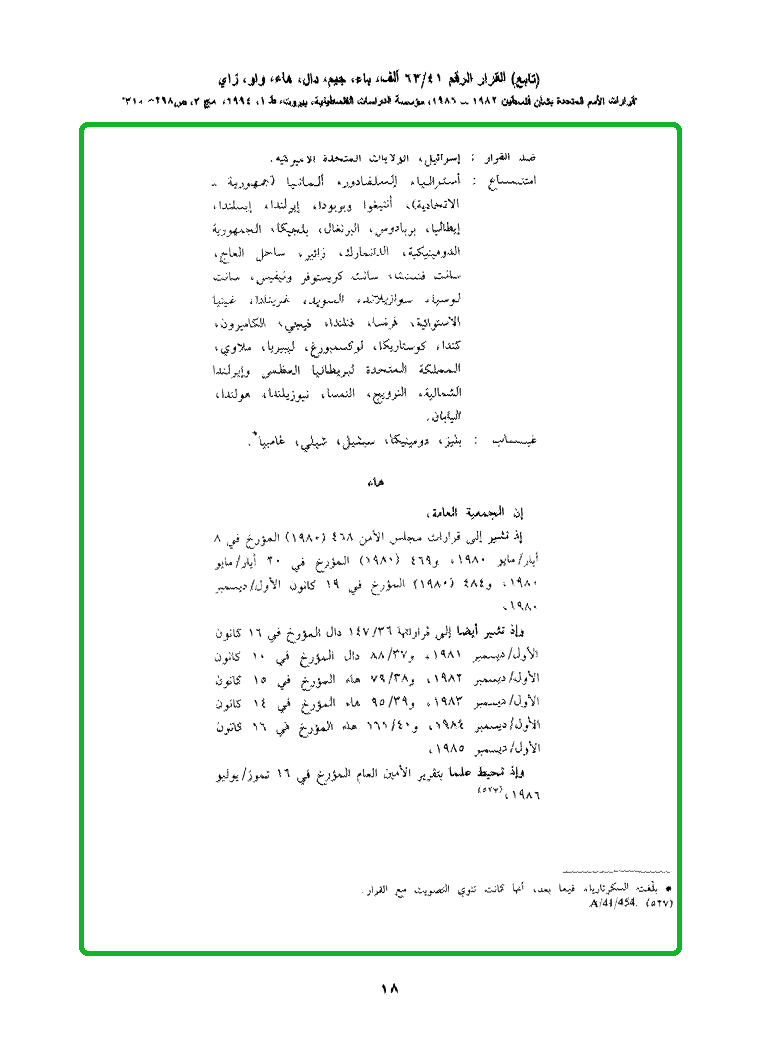 (تابع) القرار الرقم ٦٣/٤١ ألف، باء، جيم، دال، هاء، واو، زاي
"قرارات الأمم المتحدة بشأن فلسطين ١٩٨٢ – ١٩٨٦، مؤسسة الدراسات الفلسطينية، بيروت، ط ١، ١٩٩٤، مج ٣، ص ٢٩٨- ٣١٠"
ضد القرار : إسرائيل، الولايات المتحدة الأميركية.
امتنـــاع : أستراليا، إلسلفادور، ألمانيا (جمهورية ـ
الاتحادية)، أنتيغوا وبربودا، إيرلندا، إيسلندا،
إيطاليا، بربادوس، البرتغال، بلجيكا، الجمهورية
الدومينيكية، الدانمارك، زائير، ساحل العاج،
سانت فنسنت، سانت كريستوفر ونيفيس، سانت
لوسيا، سوازيلاند، السويد، غرينادا، غينيا
الاستوائية، فرنسا، فنلندا، فيجي، الكاميرون،
كندا، كوستاريكا، لوكسمبورغ، ليبيريا، ملاوي،
المملكة المتحدة لبريطانيا العظمى وإيرلندا
الشمالية، النرويج، النمسا، نيوزيلندا، هولندا،
اليابان.
غيـــاب : بليز، دومينيكا، سيشيل، شيلي، غامبيا*.
هاء
إن الجمعية العامة،
إذ تشير إلى قرارات مجلس الأمن ٤٦٨ (١٩٨٠) المؤرخ في ٨
أيار/مايو ١٩٨٠، و٤٦٩ (١٩٨٠) المؤرخ في ٢٠ أيار/مايو
١٩٨٠، و٤٨٤ (١٩٨٠) المؤرخ في ١٩ كانون الأول/ديسمبر
١٩٨٠،
وإذ تشير أيضا إلى قراراتها ١٤٧/٣٦ دال المؤرخ في ١٦ كانون
الأول/ديسمبر ١٩٨١، و٨٨/٣٧ دال المؤرخ في ١٠ كانون
الأول/ديسمبر ١٩٨٢، و٧٩/٣٨ هاء المؤرخ في ١٥ كانون
الأول/ديسمبر ١٩٨٣، و٩٥/٣٩ هاء المؤرخ في ١٤ كانون
الأول/ديسمبر ١٩٨٤، و١٦١/٤٠ هاء المؤرخ في ١٦ كانون
الأول/ديسمبر ١٩٨٥،
وإذ تحيط علما بتقرير الأمين العام المؤرخ في ١٦ تموز/يوليو
١٩٨٦،(٥٢٧)
* بلّغت السكرتارياء فيما بعد، أنها كانت تنوي التصويت مع القرار.
(٥٢٧) A/41/454.
١٨